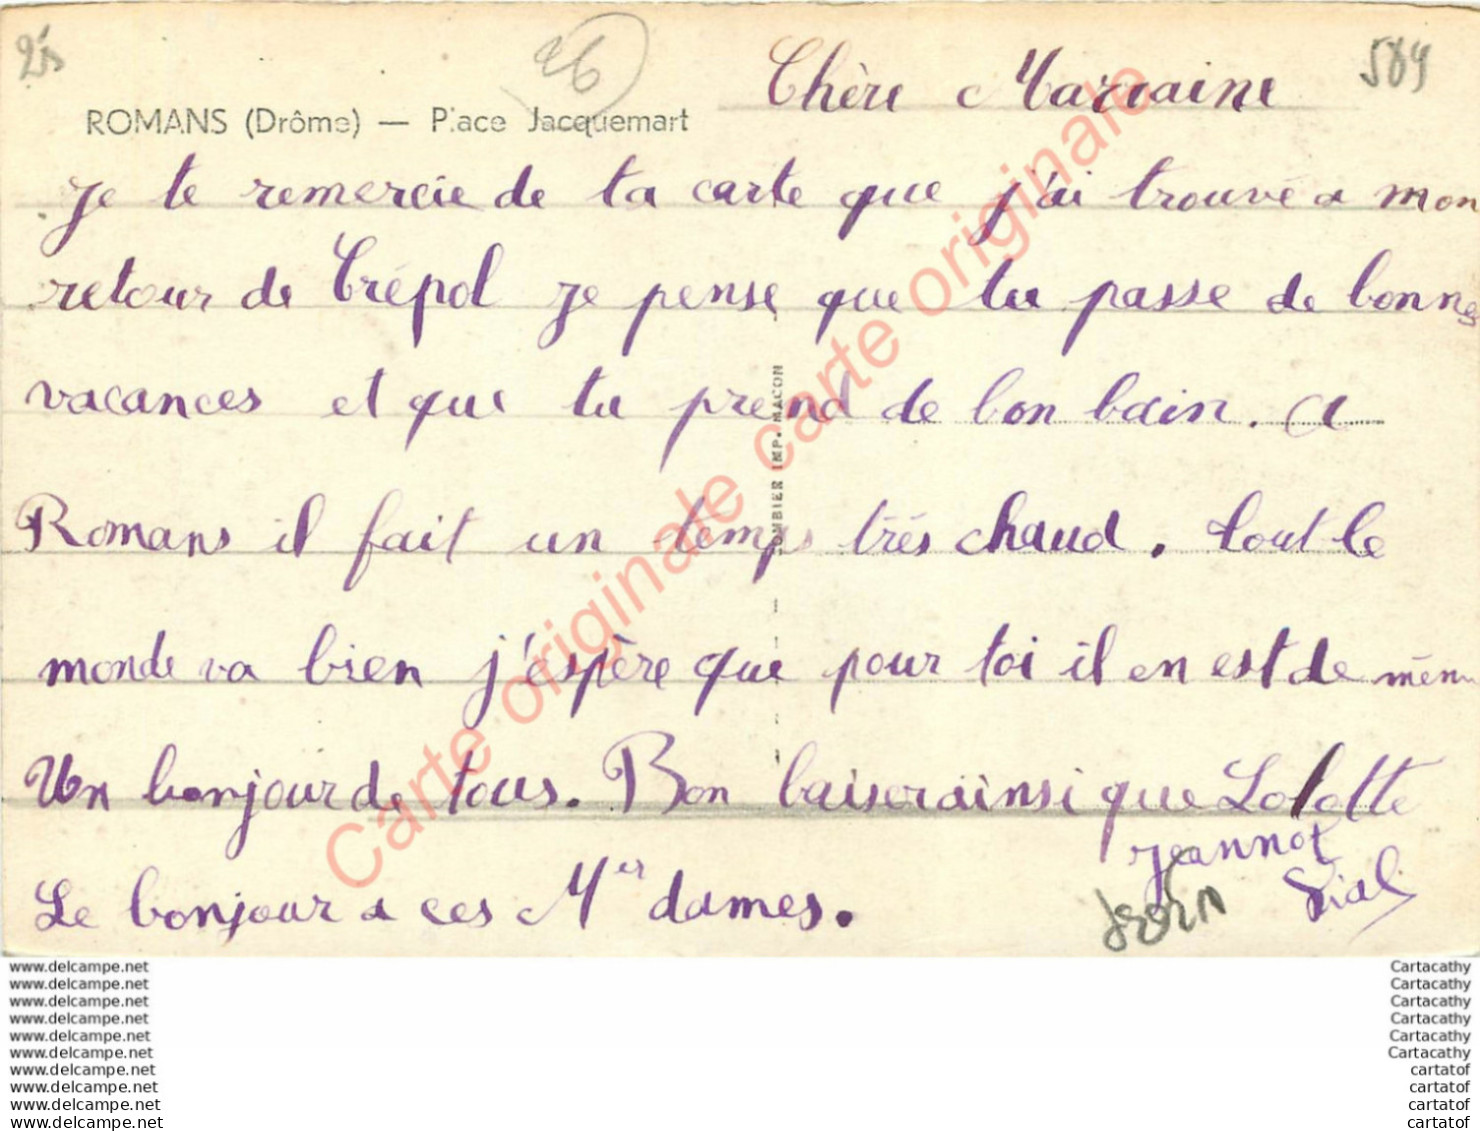 26
589
Chère Marraine
ROMANS (Drôme) — Place Jacquemart
je te remercie de ta carte que j'ai trouvé a mon
retour de Crépol je pense que tu passe de bonnes
vacances et que tu prend de bon bain. a
Romans il fait un temps très chaud. tout le
monde va bien j'espère que pour toi il en est de même
Un bonjour de tous. Bon baiser ainsi que Lolotte
Jeannot
Vial
Le bonjour a ces Mer dames.
COMBIER IMP. MACON
Carte originale carte originale
www.delcampe.net
www.delcampe.net
www.delcampe.net
www.delcampe.net
www.delcampe.net
www.delcampe.net
www.delcampe.net
www.delcampe.net
www.delcampe.net
www.delcampe.net
Cartacathy
Cartacathy
Cartacathy
Cartacathy
Cartacathy
Cartacathy
cartatof
cartatof
cartatof
cartatof